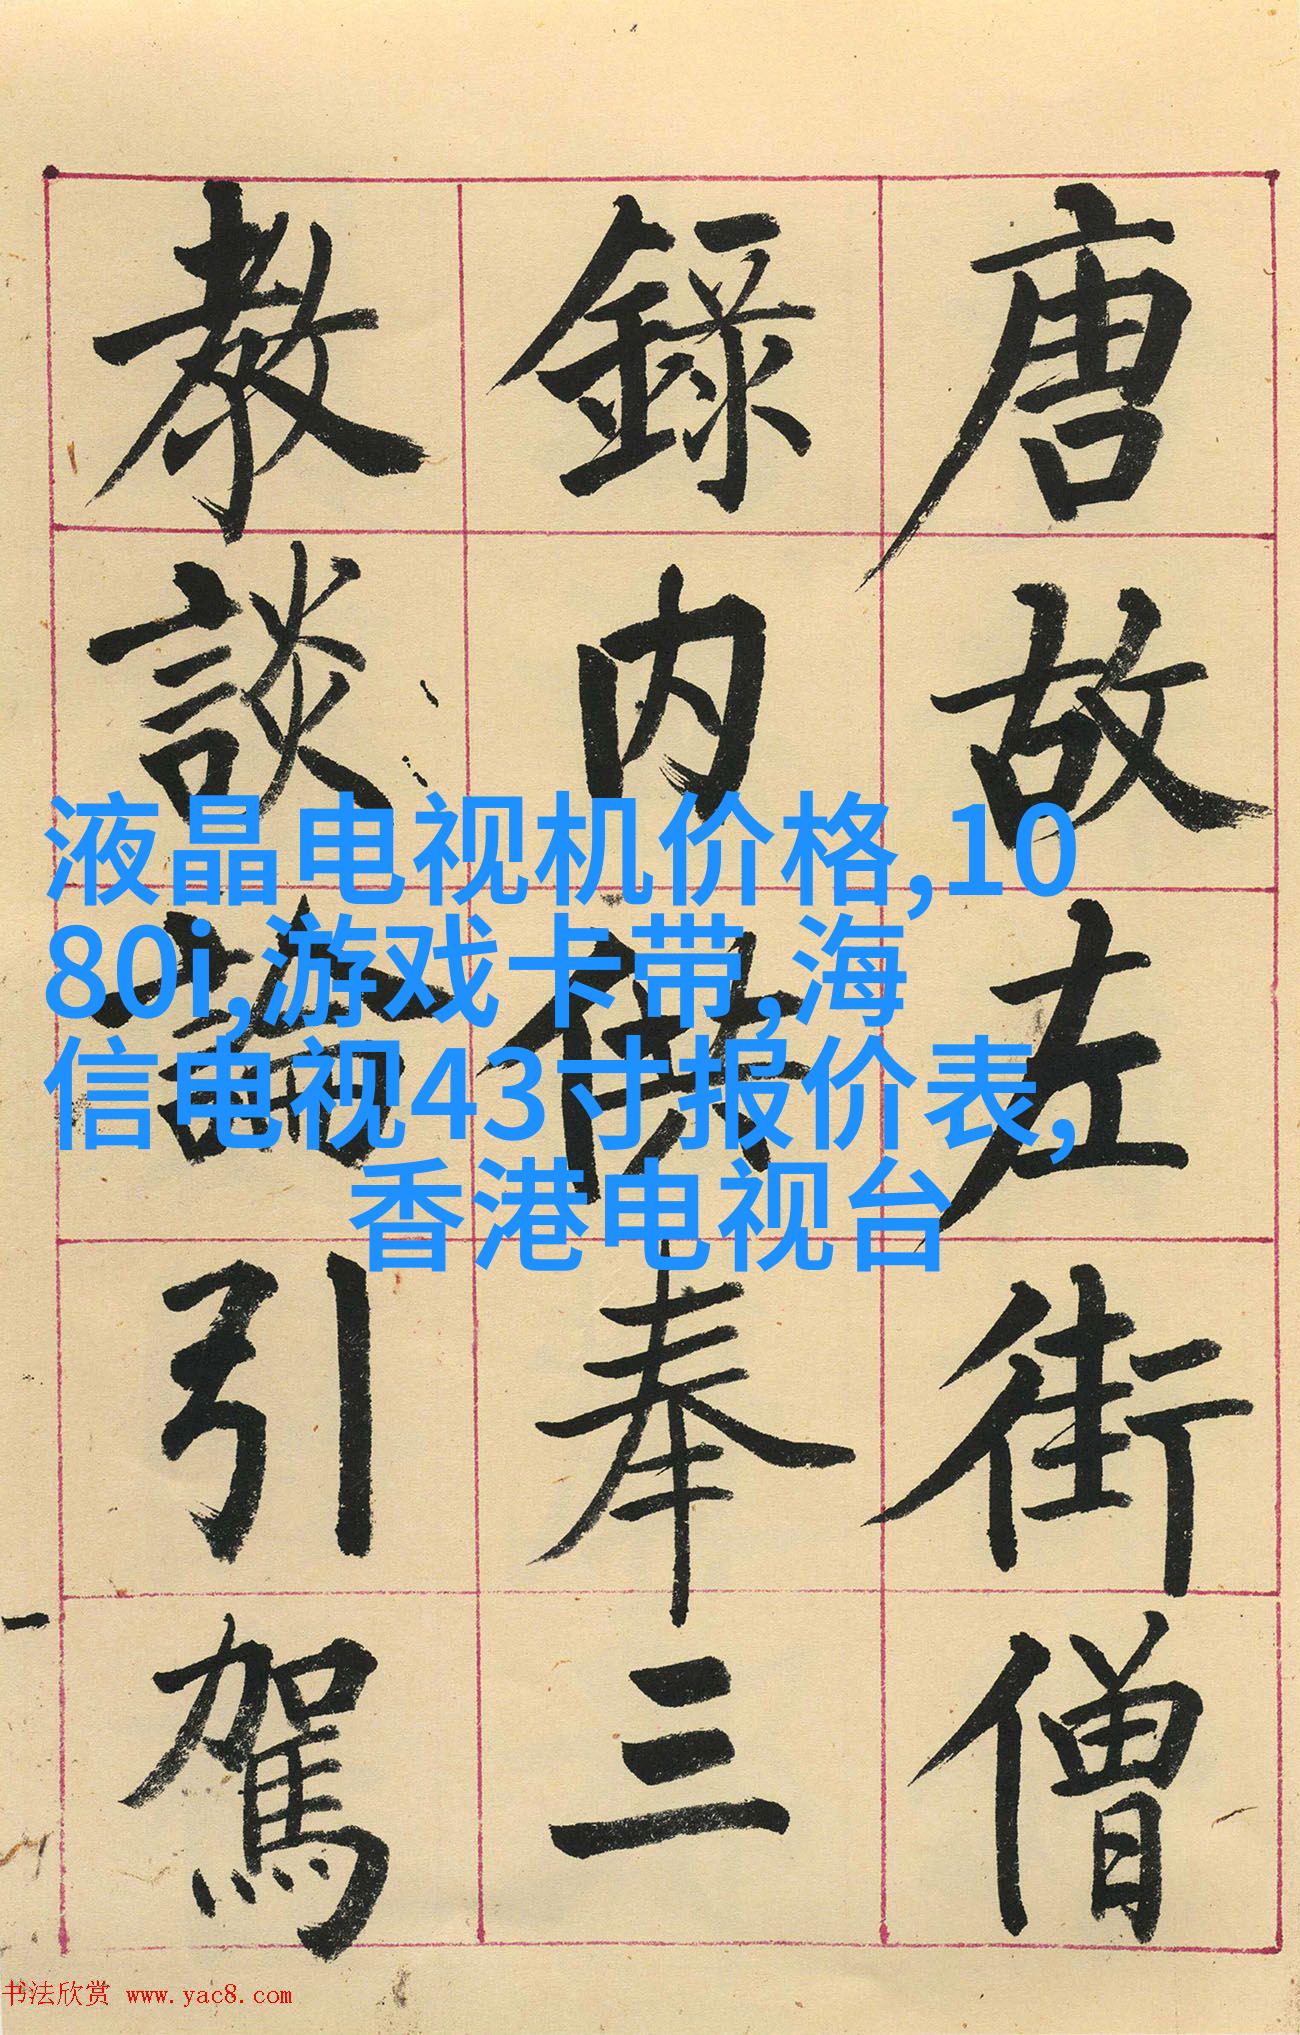 唐故左街僧
錄内供奉三
教談論引駕
液晶电视机价格,10
80i,游戏卡带,海
信电视43寸报价表,
香港电视台
书法欣赏 www.yac8.com